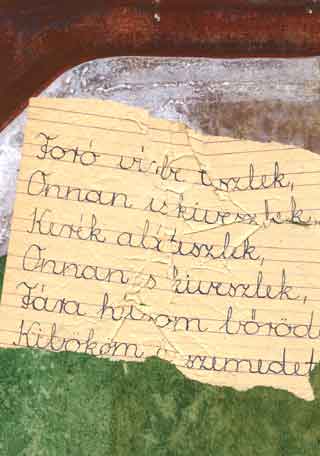 Foró vízbe teszlek,
Onnan is kiveszlek,
Kerék alá teszlek,
Onnan is kiveszlek,
Fára húzom bőröd
Kibököm a szemedet